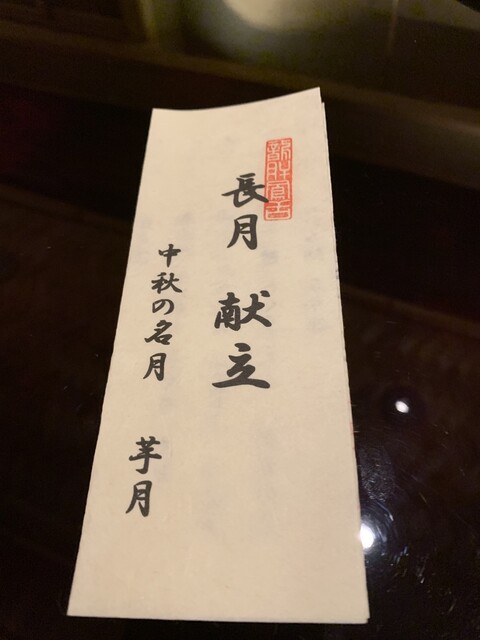 長月 献立
中秋の名月 芋月